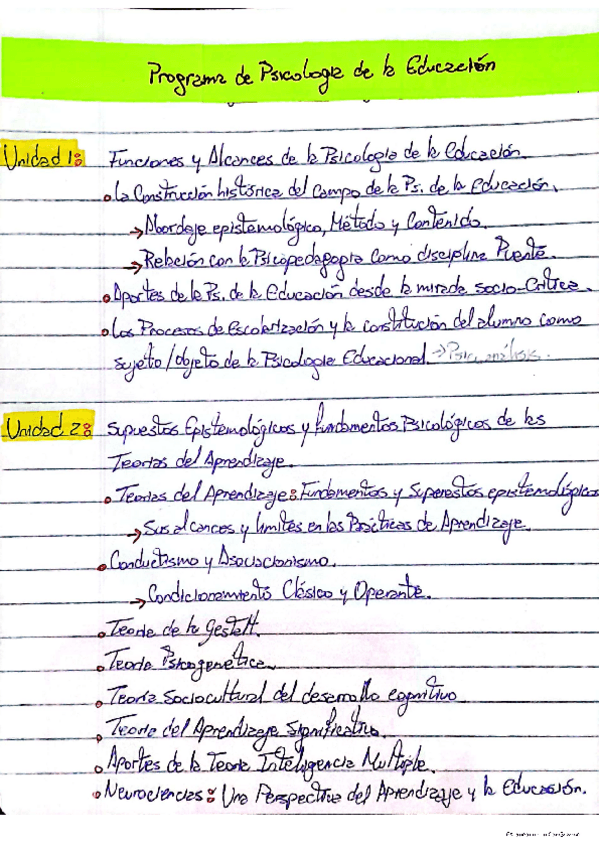 Programa de Psicología de la Educación
Unidad 1: Funciones y Alcances de la Psicología de la Educación.
• La Construcción histórica del campo de la Ps. de la Educación.
→ Abordaje epistemológico, Método y Contenido.
→ Relación con la Psicopedagogía como disciplina Puente.
• Aportes de la Ps. de la Educación desde la mirada socio-Crítica.
• Los Procesos de Escolarización y la constitución del alumno como
sujeto/objeto de la Psicología Educacional → Psicoanálisis.
Unidad 2: Supuestos Epistemológicos y fundamentos Psicológicos de las
Teorías del Aprendizaje.
• Teorías del Aprendizaje: Fundamentos y Supuestos epistemológicos
→ Sus alcances y límites en las Prácticas de Aprendizaje.
• Conductismo y Asociacionismo.
→ Condicionamiento Clásico y Operante.
• Teoría de la Gestalt.
• Teoría Psicogenética.
• Teoría Sociocultural del desarrollo cognitivo
• Teoría del Aprendizaje Significativo.
• Aportes de la Teoría Inteligencia Multiple.
• Neurociencias: Una Perspectiva del Aprendizaje y la Educación.